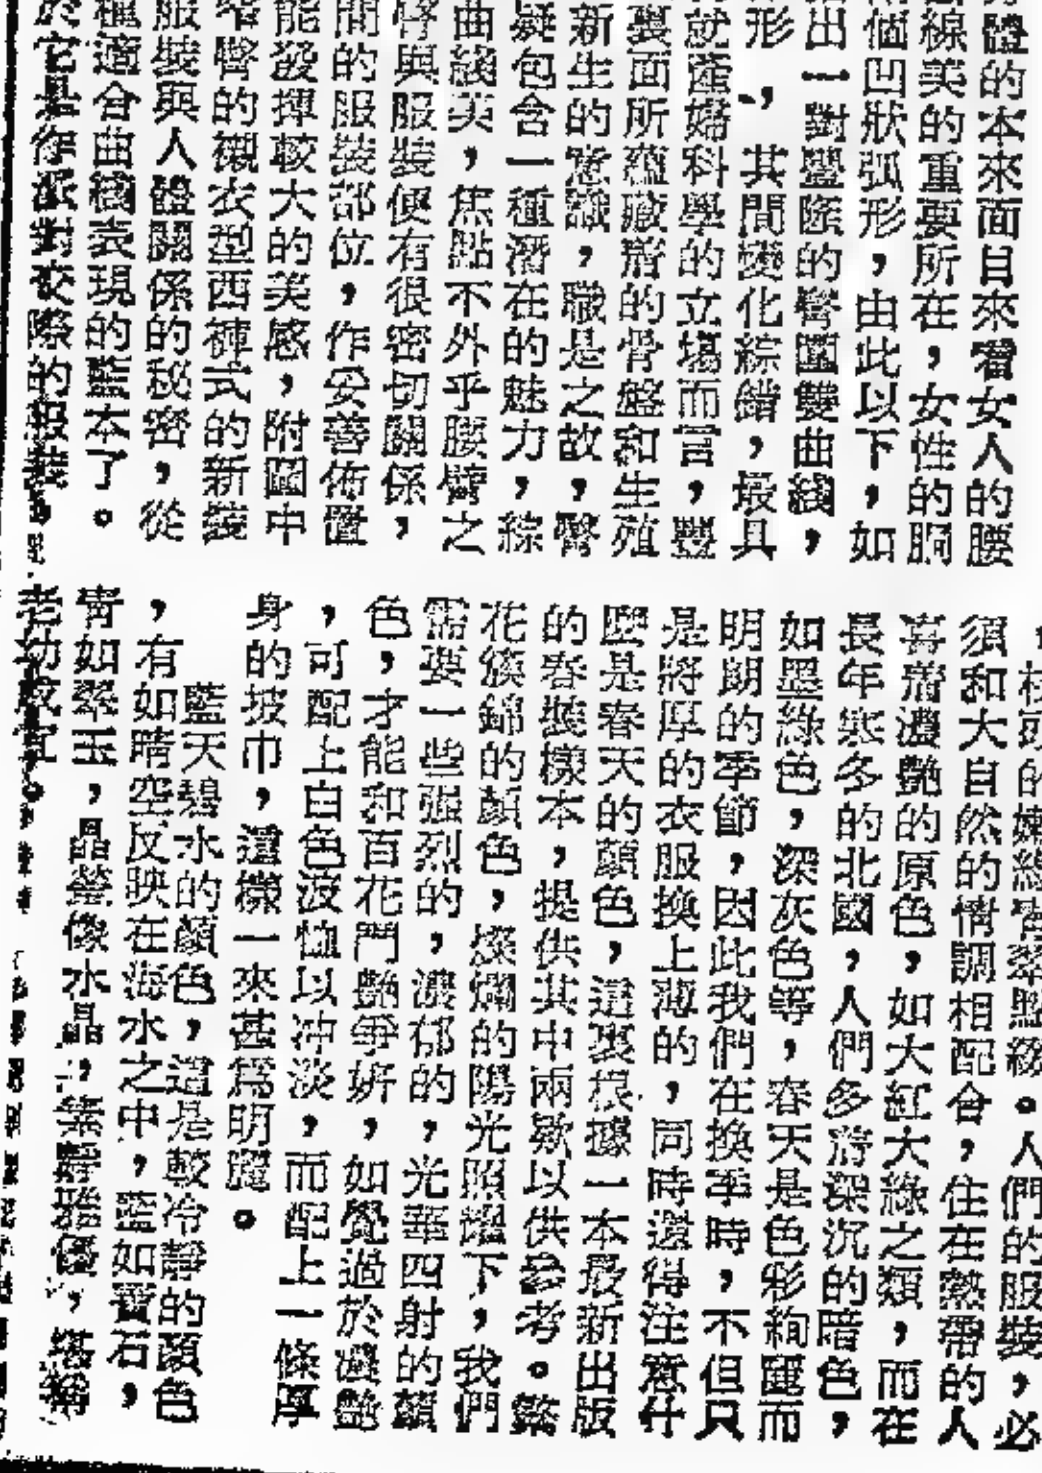 體的本來面目來看女人的腰
線美的重要所在，女性的胴
個凹狀弧形，由此以下，如
出一對豐隆的臀圍雙曲綫，
形，其間變化綜錯，最具
就產婦科學的立場而言，豐
裏面所蘊藏着的骨盤和生殖
新生的意識，職是之故，臀
疑包含一種潛在的魅力，綜
曲綫美，焦點不外乎腰臀之
臀與服裝便有很密切關係，
間的服裝部位，作妥善佈置
能發揮較大的美感，附圖中
窄臀的襯衣型西褲式的新裝
服裝與人體關係的秘密，從
種適合曲綫表現的藍本了。
於它是作派對交際的服裝
，枝頭的嫩綠青翠點綴。人們的服裝，必
須和大自然的情調相配合，住在熱帶的人
喜着濃艷的原色，如大紅大綠之類，而在
長年寒冬的北國，人們多着深沉的暗色，
如墨綠色，深灰色等，春天是色彩絢麗而
明朗的季節，因此我們在換季時，不但只
是將厚的衣服換上薄的，同時還得注意什
麽是春天的顏色，這裏根據一本最新出版
的春裝樣本，提供其中兩欵以供參考。繁
花簇錦的顏色，燦爛的陽光照耀下，我們
需要一些强烈的，濃郁的，光華四射的顏
色，才能和百花鬥艷爭妍，如覺過於濃艷
，可配上白色波恤以冲淡，而配上一條厚
身的坡巾，這樣一來甚爲明麗。
藍天碧水的顏色，這是較冷靜的顏色
，有如晴空反映在海水之中，藍如寶石，
青如翠玉，晶瑩像水晶，靜雅優，堪稱
老幼咸宜。